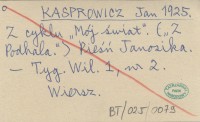 KASPROWICZ Jan 1925.
Z cyklu „Mój świat". („Z
Podhala.") Pieśń Janosika.
— Tyg. Wil. 1, nr 2.
Wiersz.
BT/025/0079